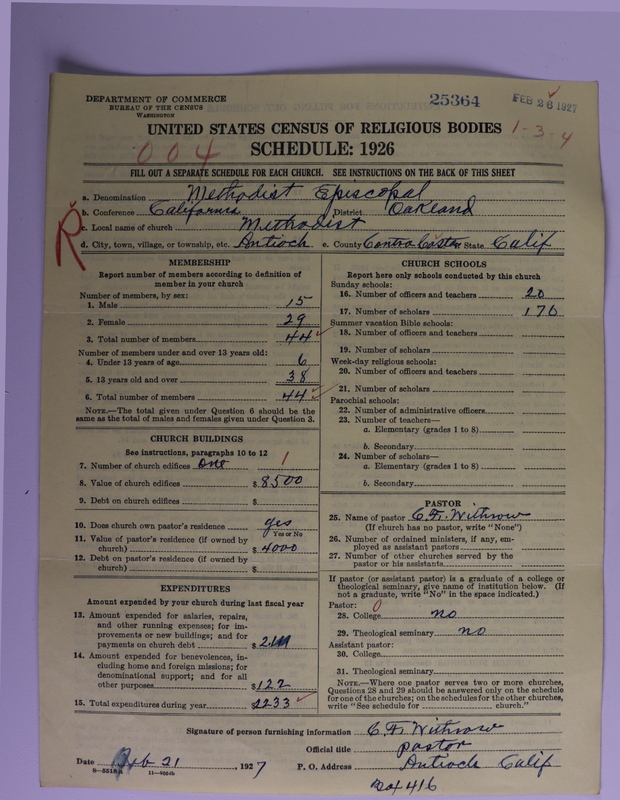 DEPARTMENT OF COMMERCE
BUREAU OF THE CENSUS
WASHINGTON
25364
FEB 26 1927
UNITED STATES CENSUS OF RELIGIOUS BODIES
1-3-4
004
SCHEDULE: 1926
FILL OUT A SEPARATE SCHEDULE FOR EACH CHURCH. SEE INSTRUCTIONS ON THE BACK OF THIS SHEET
a. Denomination Methodist Episcopal
b. Conference California District Oakland
R
c. Local name of church Methodist
d. City, town, village, or township, etc. Antioch e. County Contra Costa State Calif
MEMBERSHIP
Report number of members according to definition of
member in your church
Number of members, by sex:
1. Male 15
2. Female 29
3. Total number of members 44
Number of members under and over 13 years old:
4. Under 13 years of age 6
5. 13 years old and over 38
6. Total number of members 44
NOTE.—The total given under Question 6 should be the
same as the total of males and females given under Question 3.
CHURCH BUILDINGS
See instructions, paragraphs 10 to 12
7. Number of church edifices one 1
8. Value of church edifices $ 8500
9. Debt on church edifices $
10. Does church own pastor's residence yes
Yes or No
11. Value of pastor's residence (if owned by
church) $ 4000
12. Debt on pastor's residence (if owned by
church) $
EXPENDITURES
Amount expended by your church during last fiscal year
13. Amount expended for salaries, repairs,
and other running expenses; for im-
provements or new buildings; and for
payments on church debt $ 2111
14. Amount expended for benevolences, in-
cluding home and foreign missions; for
denominational support; and for all
other purposes $ 122
15. Total expenditures during year $ 2233
CHURCH SCHOOLS
Report here only schools conducted by this church
Sunday schools:
16. Number of officers and teachers 20
17. Number of scholars 170
Summer vacation Bible schools:
18. Number of officers and teachers
19. Number of scholars
Week-day religious schools:
20. Number of officers and teachers
21. Number of scholars
Parochial schools:
22. Number of administrative officers
23. Number of teachers—
a. Elementary (grades 1 to 8)
b. Secondary
24. Number of scholars—
a. Elementary (grades 1 to 8)
b. Secondary
PASTOR
25. Name of pastor C. F. Withrow
(If church has no pastor, write "None")
26. Number of ordained ministers, if any, em-
ployed as assistant pastors
27. Number of other churches served by the
pastor or his assistants
If pastor (or assistant pastor) is a graduate of a college or
theological seminary, give name of institution below. (If
not a graduate, write "No" in the space indicated.)
Pastor: 0
28. College no
29. Theological seminary no
Assistant pastor:
30. College
31. Theological seminary
NOTE.—Where one pastor serves two or more churches,
Questions 28 and 29 should be answered only on the schedule
for one of the churches; on the schedules for the other churches,
write "See schedule for church."
Signature of person furnishing information C. F. Withrow
Official title pastor
Date Feb 21, 1927 P. O. Address Antioch Calif
8-5518 11-9204b
Box 416